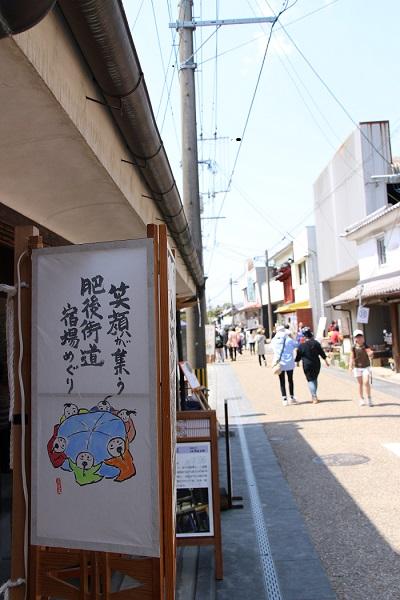 笑顔が集う
肥後街道
宿場めぐり